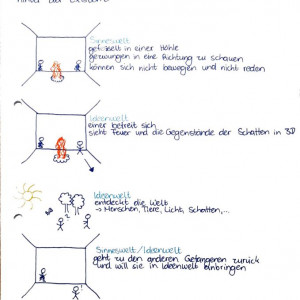 hinter der Existenz
Sinneswelt
gefesselt in einer Höhle
gezwungen in eine Richtung zu schauen
können sich nicht bewegen und nicht reden
Ideenwelt
einer befreit sich
sieht Feuer und die Gegenstände der Schatten in 3D
Ideenwelt
entdeckt die Welt
→ Menschen, Tiere, Licht, Schatten,...
Sinneswelt/Ideenwelt
geht zu den anderen Gefangenen zurück
und will sie in Ideenwelt einbringen